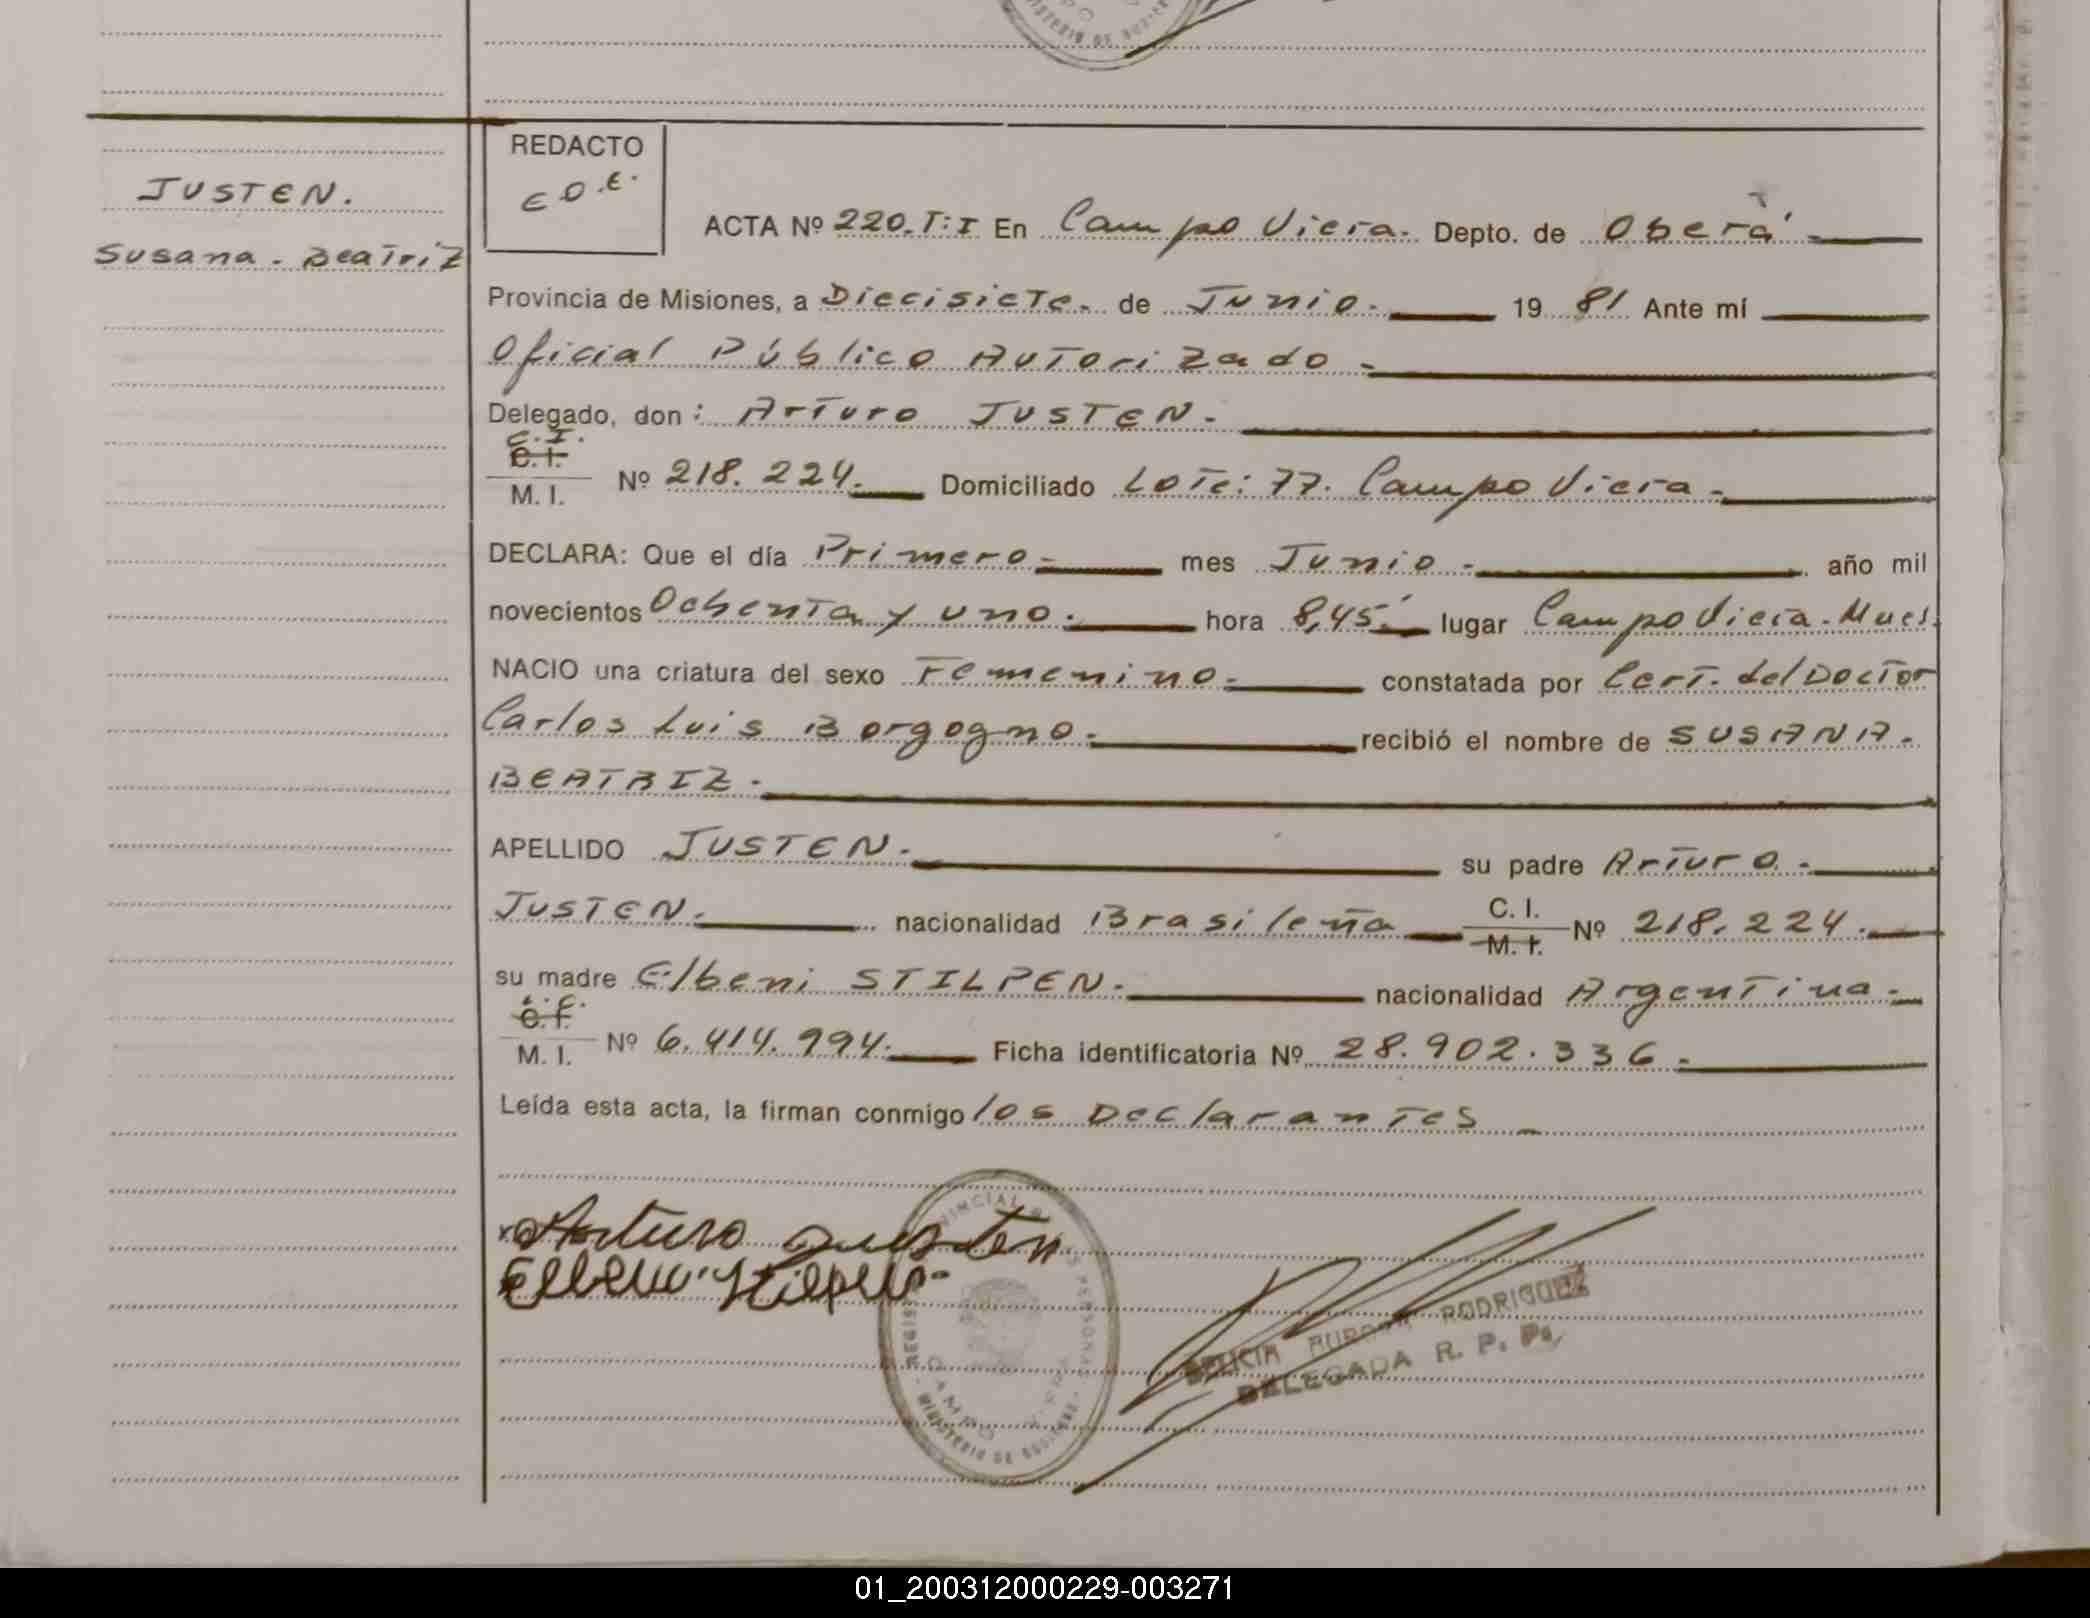 JUSTEN.
Susana - Beatriz
REDACTO
ACTA Nº 220. T: I En Campo Viera. Depto. de Oberá
Provincia de Misiones, a Diecisiete. de Junio. 19 81 Ante mí
Oficial Público Autorizado
Delegado, don : Arturo JUSTEN.
C. I.
C. I.
M. I. Nº 218. 224. Domiciliado Lote: 77. Campo Viera
DECLARA: Que el día Primero mes Junio año mil
novecientos Ochenta y uno. hora 8,45' lugar Campo Viera.
NACIO una criatura del sexo Femenino. constatada por Cert. del Doctor
Carlos Luis Borgogno. recibió el nombre de SUSANA.
BEATRIZ.
APELLIDO JUSTEN. su padre Arturo.
JUSTEN. nacionalidad Brasileña C. I. M. I. Nº 218. 224.
su madre Elbeni STILPEN. nacionalidad Argentina
M. I. Nº 6. 414. 994. Ficha identificatoria Nº 28. 902. 336.
Leída esta acta, la firman conmigo los Declarantes
Arturo Justen
RODRIGUEZ
DELEGADA R. P. P.
MINISTERIO DE
01_200312000229-003271